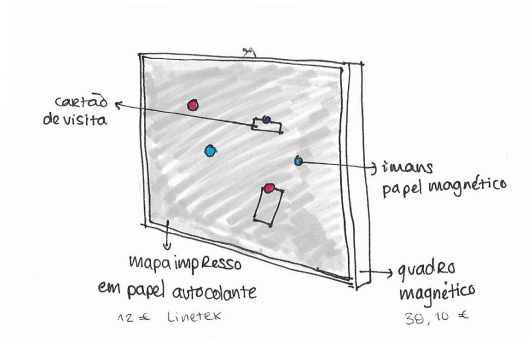 cartão
de visita
imans
papel magnético
mapa impresso
em papel autocolante
12 € Linetek
quadro
magnético
38,10 €